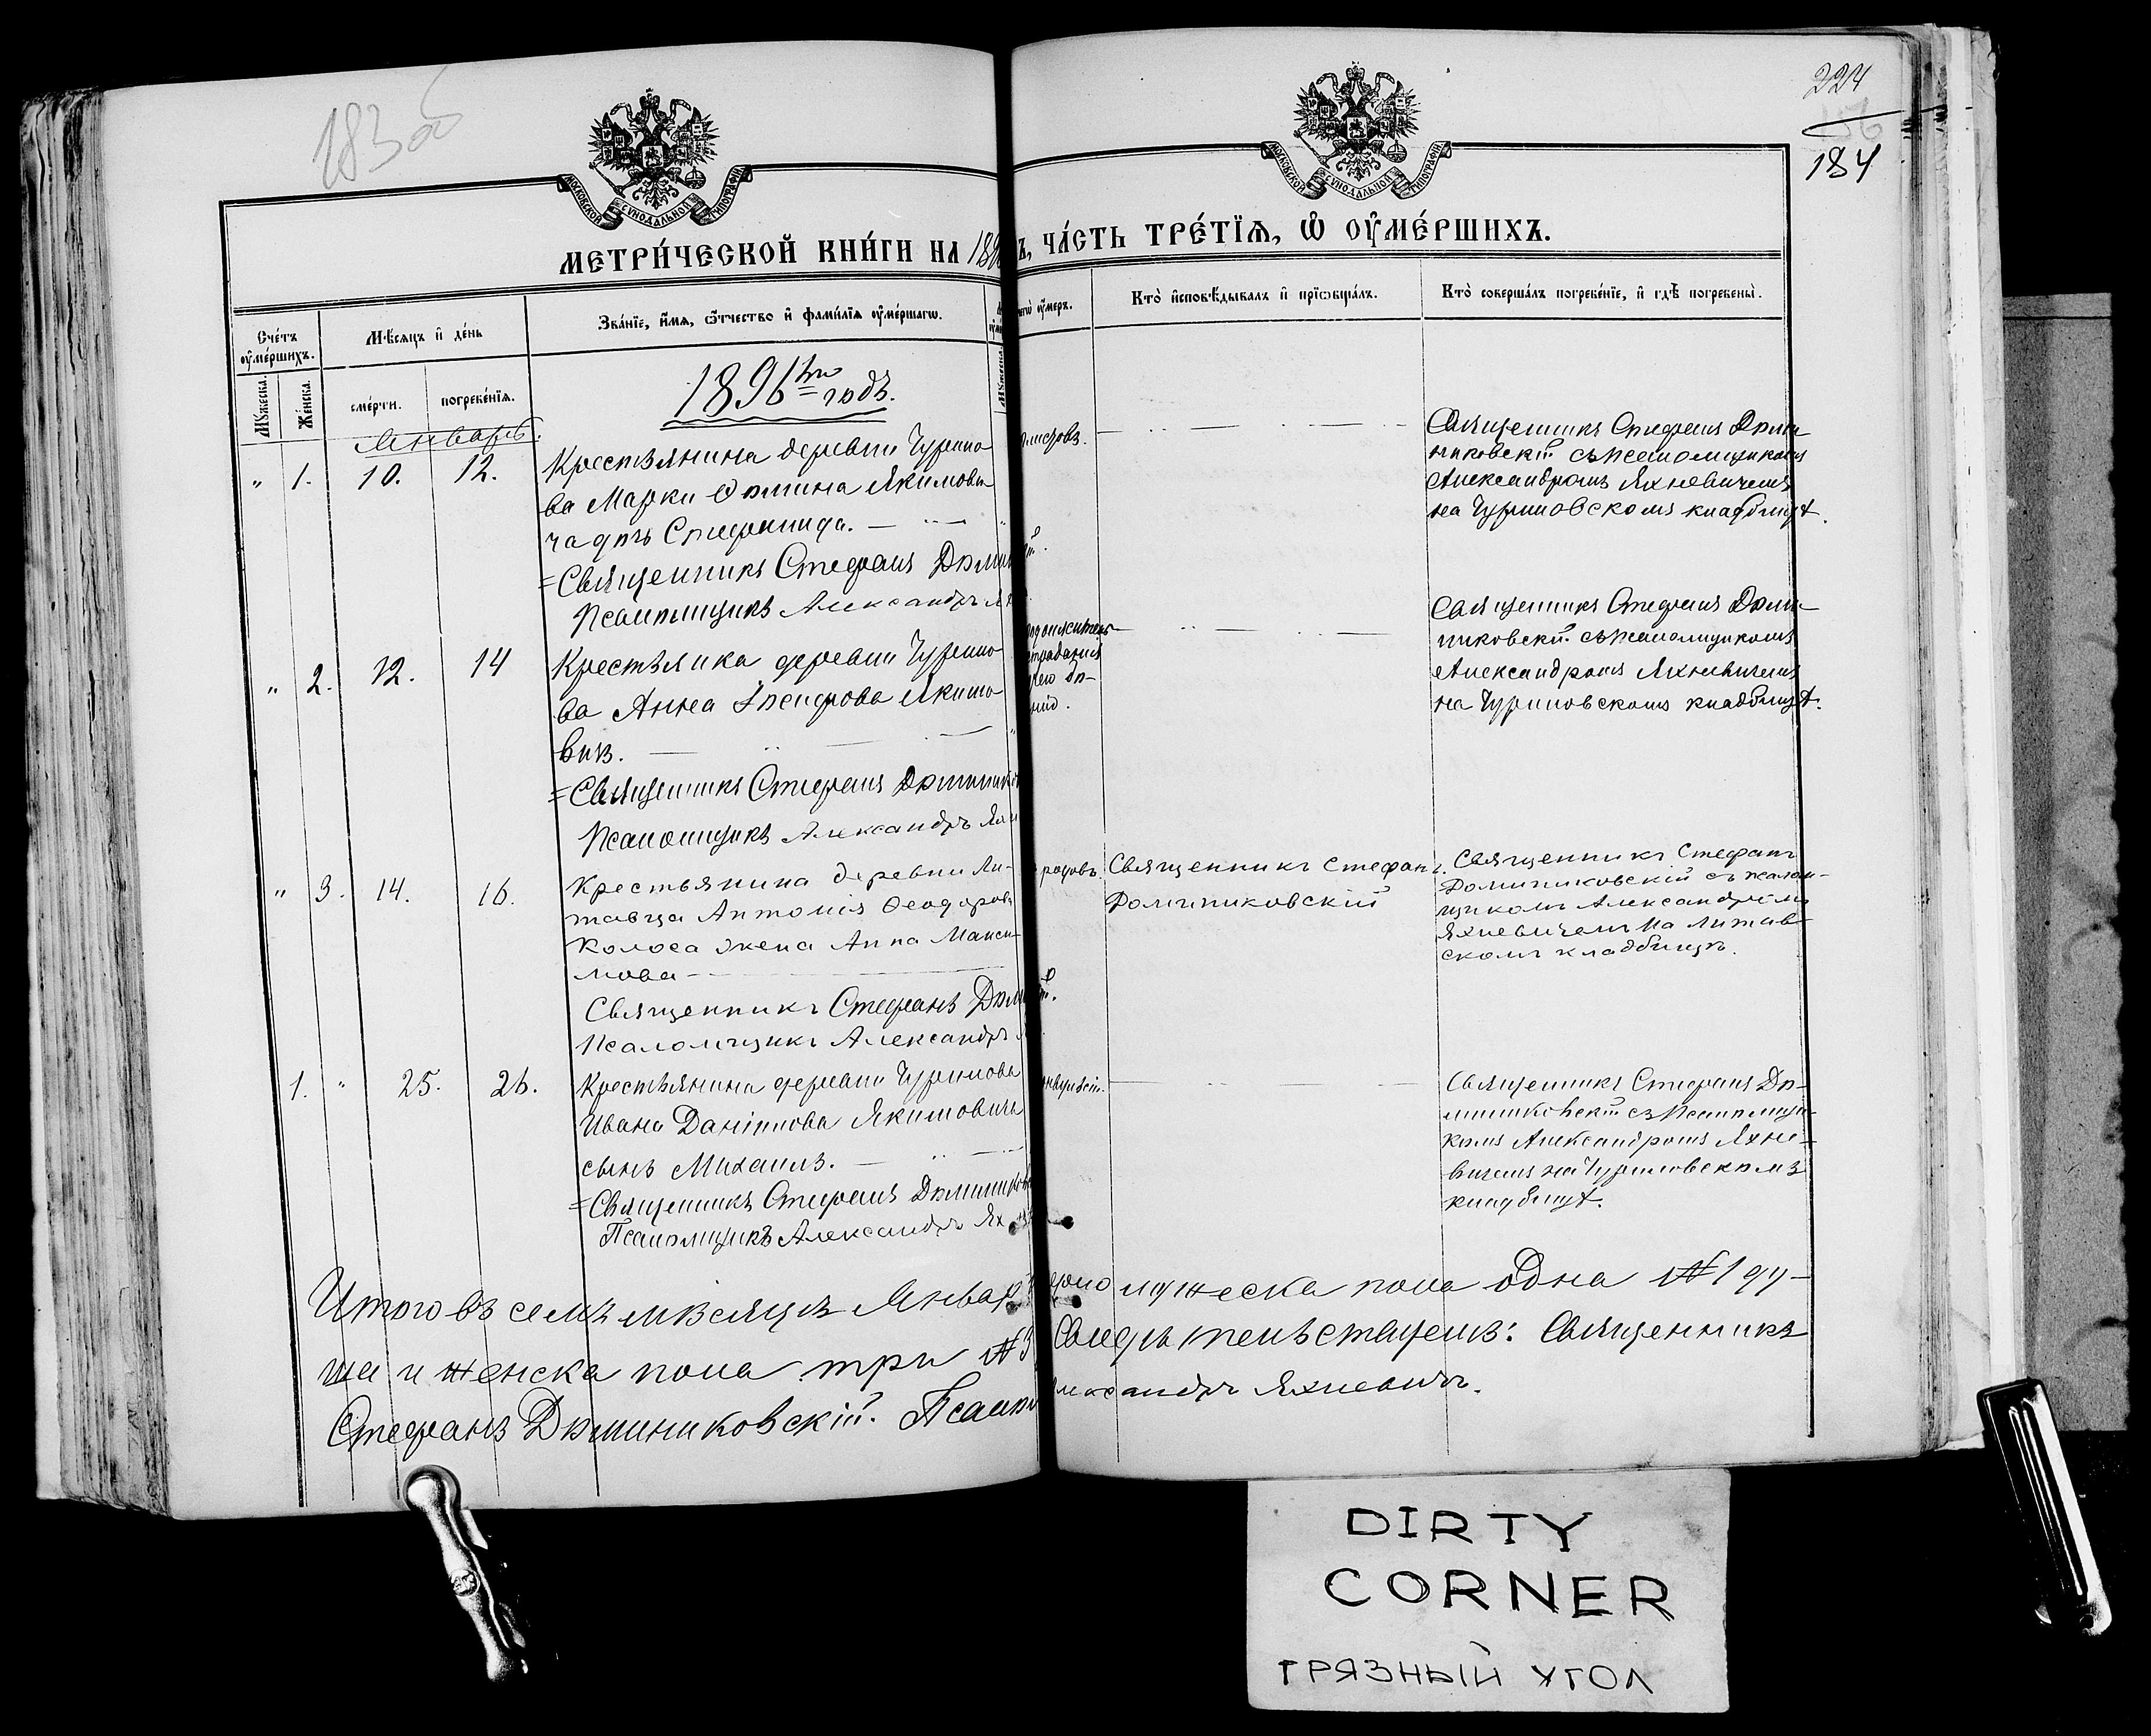 183 об
224
184
МОСКОВСКОЙ СУНОДАЛЬНОЙ ТИПОГРАФІИ
МОСКОВСКОЙ СУНОДАЛЬНОЙ ТИПОГРАФІИ
МЕТРИ́ЧЕСКОЙ КНИ́ГИ НА 189
Ъ, ЧА́СТЬ ТРЕ́ТЇѦ, Ѽ ОУ҆МЕ́РШИХЪ.
Сче́тъ оу҆ме́ршихъ.
Мѣ́сѧцъ и҆ де́нь
Зва́нїе, и҆́мѧ, ѻ҆́тчество и҆ фами́лїѧ оу҆ме́ршагѡ.
чегѡ̀ оу҆́меръ.
Кто̀ и҆сповѣ́дывалъ и҆ прїѡбща́лъ.
Кто̀ соверша́лъ погребе́нїе, и҆ гдѣ̀ погребены̀.
Мꙋ́жеска.
Же́нска.
сме́рти.
погребе́нїѧ.
1896го годъ.
Январь.
" 1. 10. 12.
Крестьянина деревни Чурило-
ва Марки Ѳомина Якимови-
ча дочь Стефанида.
=Священникъ Стефанъ Доми
Псаломщикъ Александръ Ях
Священникъ Стефанъ Доми-
никовскій съ псаломщикомъ
Александромъ Яхневичемъ
на Чуриловскомъ кладбищѣ.
" 2. 12. 14
Крестьянка деревни Чурило-
ва Анна
Якимо-
вичъ.
=Священникъ Стефанъ Домиников
Псаломщикъ Александръ Яхн
Священникъ Стефанъ Доми-
никовскій съ псаломщикомъ
Александромъ Яхневичемъ
на Чуриловскомъ кладбищѣ.
" 3. 14. 16.
Крестьянина деревни Ли-
тавца Антонія Ѳеодорова
Колоса жена Анна Макси-
мова
Священникъ Стефанъ Дом
Псаломщикъ Александръ
родовъ
Священникъ Стефанъ
Доминиковскій
Священникъ Стефанъ
Доминиковскій съ псалом-
щикомъ Александромъ
Яхневичемъ на Литав-
скомъ кладбищѣ.
1. " 25. 26.
Крестьянина деревни Чурилова
Ивана Даніилова Якимовича
сынъ Михаилъ.
=Священникъ Стефанъ Домиников
Псаломщикъ Александръ Ях
Священникъ Стефанъ До-
миниковскій съ псаломщи-
комъ Александромъ Яхне-
вичемъ на Чуриловскомъ
кладбищѣ.
Итого въ семъ мѣсяцѣ Январ
мужеска пола одна №1 ду-
ша и женска пола три №3
Свидѣтельствуемъ: Священникъ
Стефанъ Доминиковскій. Псало
лександръ Яхневичъ.
DIRTY
CORNER
ГРЯЗНЫЙ УГОЛ